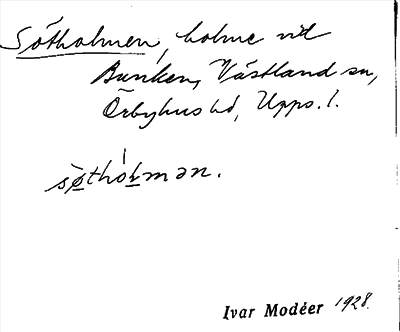 Sötholmen, holme vid
Bunken, Västland sn,
Örbyhus hd, Upps. l.
søthol̩mən.
Ivar Modéer 1928.